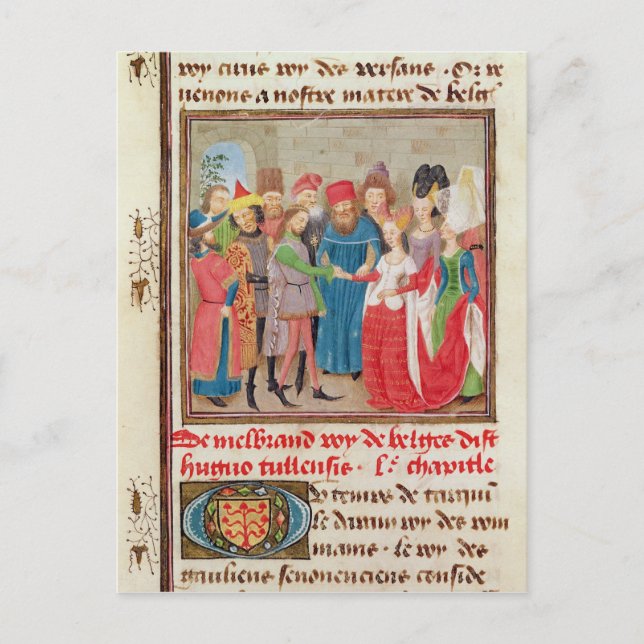 roy cirus roy des persans . Or re
venons a nostre matere de belges
De melbrand roy de belges dist
hugues tullensis . Le chapitle
Du temps de tarqui
le darain roy des rom
mains . le roy des
gauliens senonenciens conside